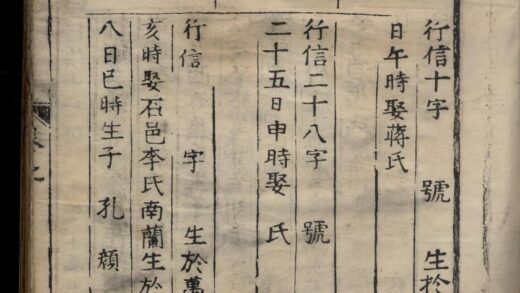 行信十字 號 生於
日午時娶蔣氏
行信二十八字 號
二十五日申時娶 氏
行信 字 生於萬
亥時娶石邑李氏南蘭生於
八日巳時生子 孔 顏